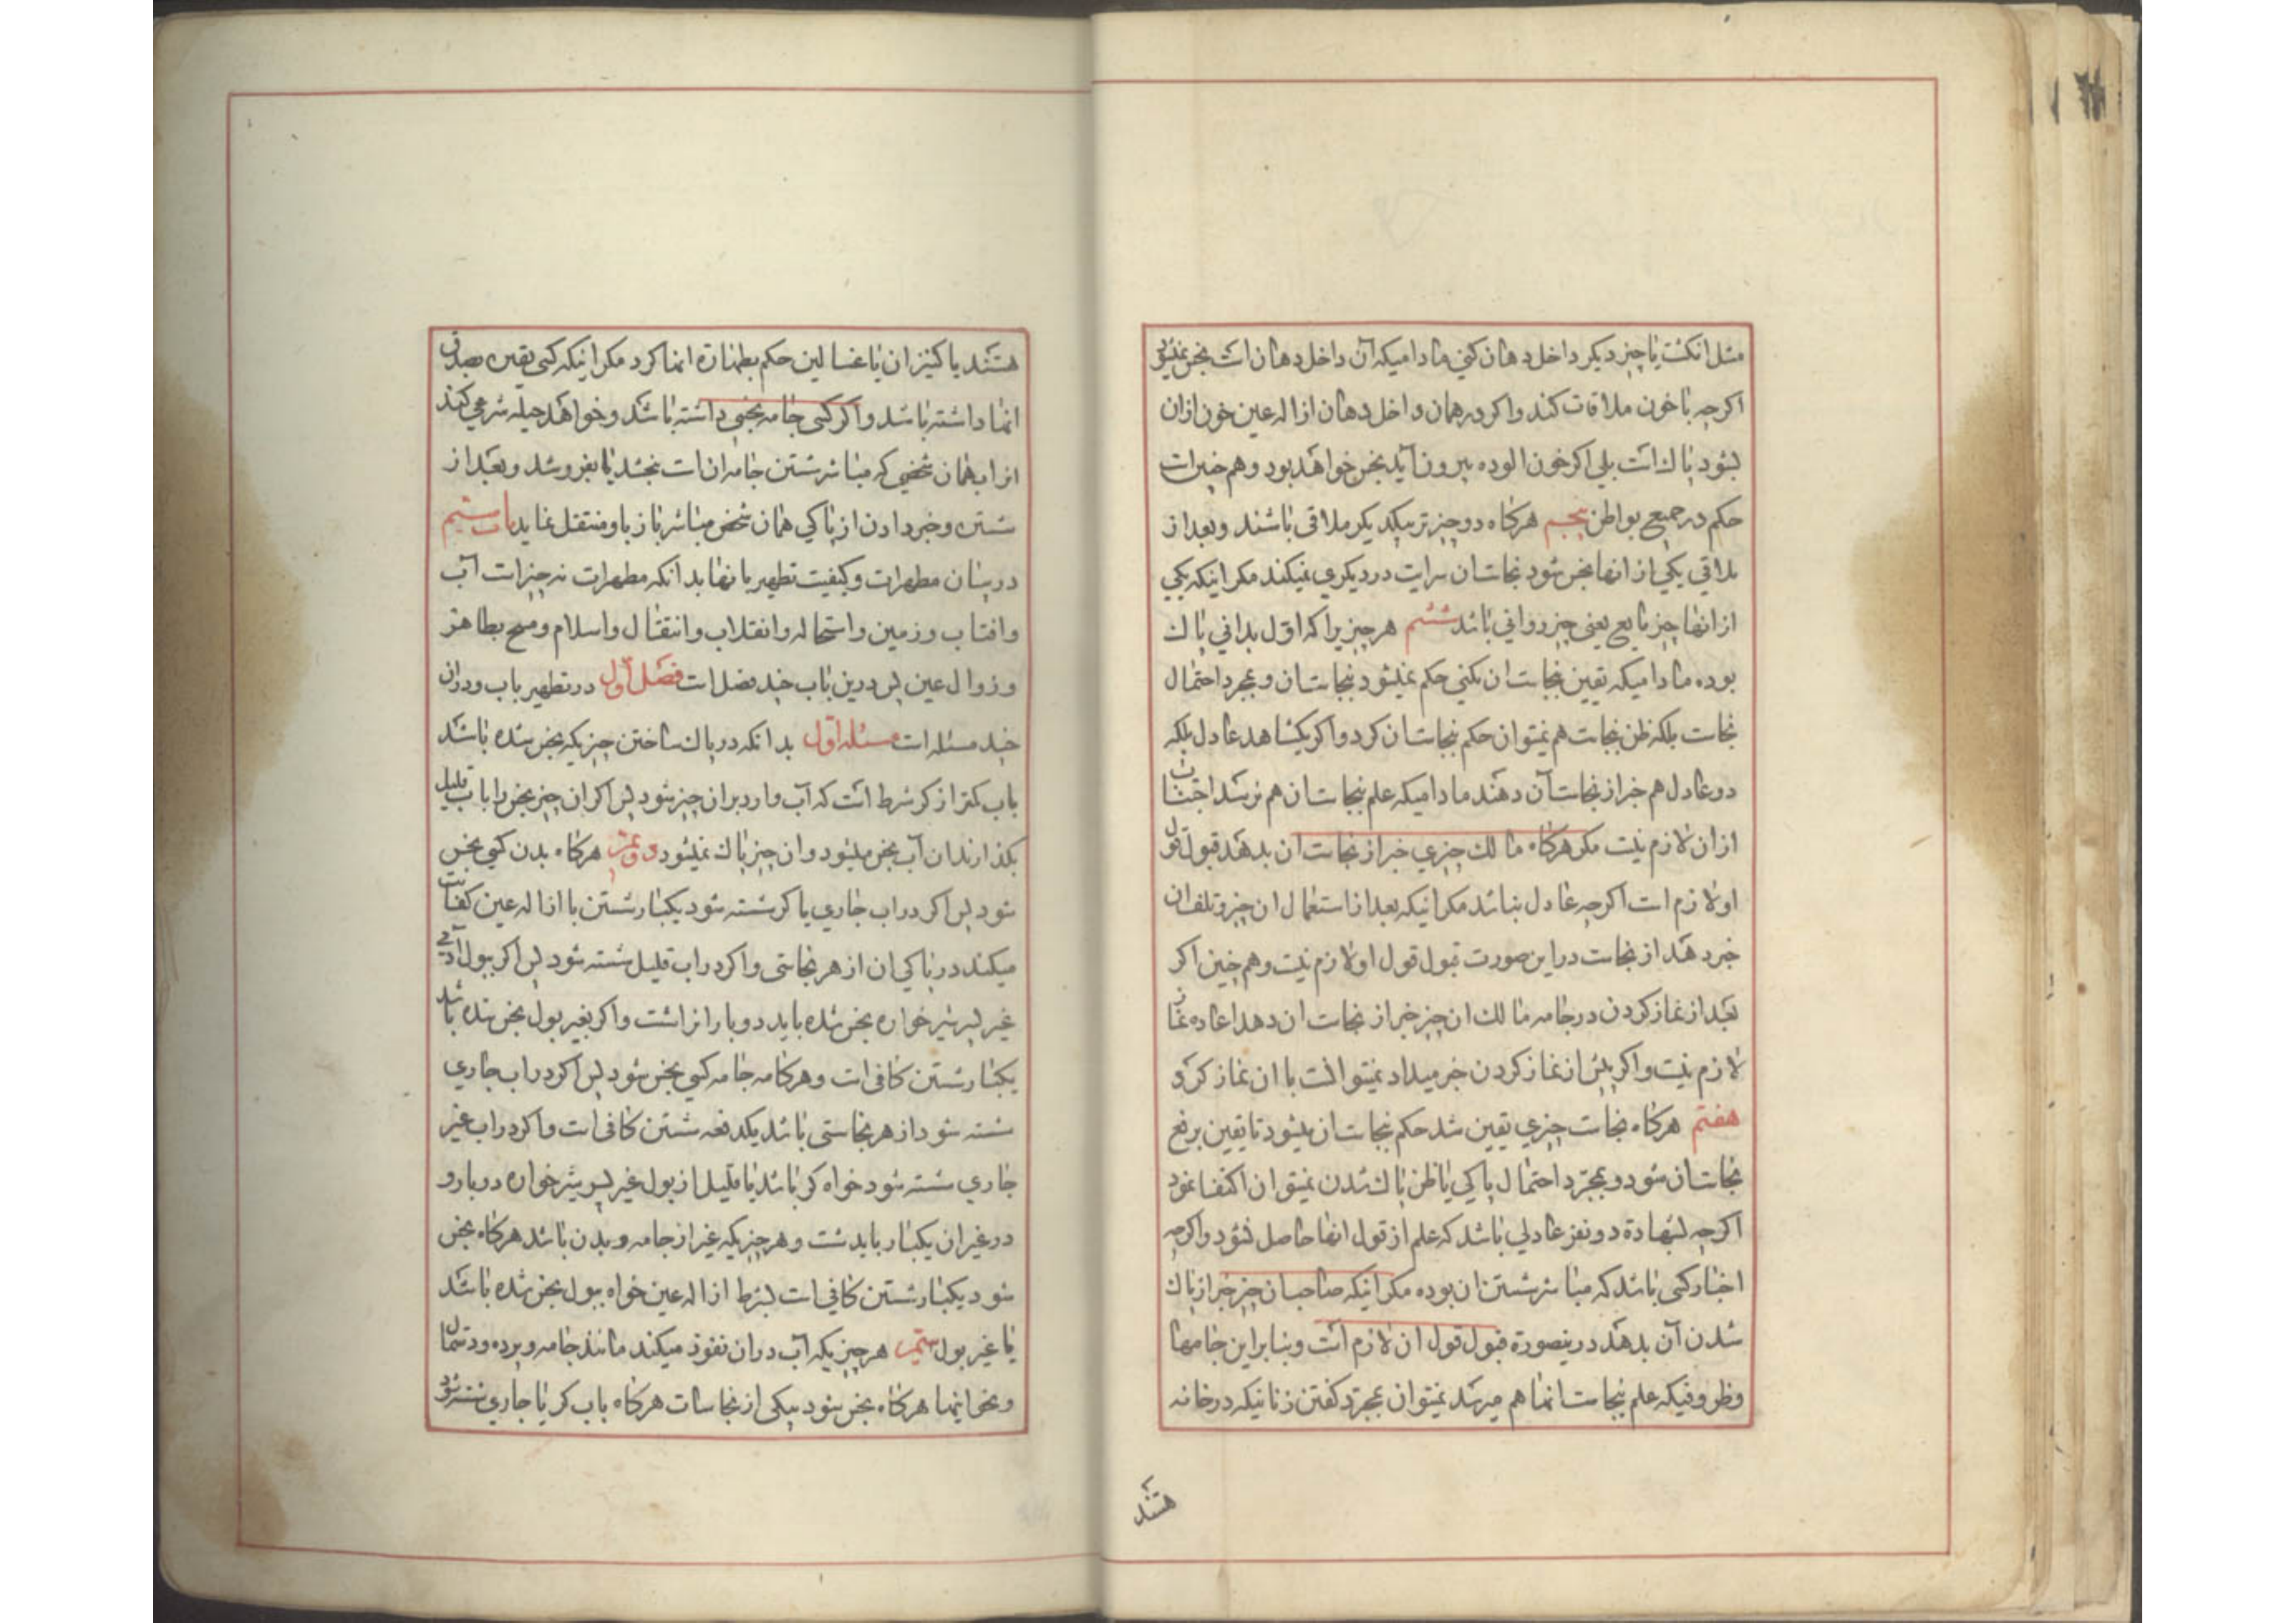 مثل انکشت یا چیز دیکر داخل دهان کنی مادامیکه آن داخل دهان است نجس نمیشود
اکرچه با خون ملاقات کند واکر در همان داخل دهان ازاله عین خون ازان
بشود پاك است بلی اکر خون الوده بیرون آید نجس خواهد بود وهم چنین است
حکم در جمیع بواطن پنجم هرکاه دو چیز تر بیکدیکر ملاقی باشند وبعد از
ملاقی یکی از انها نجس شود نجاست ان سرایت در دیکری نمیکند مکر اینکه یکی
از انها چیز مایع یعنی چیز روانی باشد ششم هر چیزیرا که اوّل بدانی پاك
بوده مادامیکه یقین نجاست ان نکنی حکم نمیشود بنجاست ان وبمجرد احتمال
نجاست بلکه ظن نجاست هم نمیتوان حکم بنجاست ان کرد واکر یکشاهد عادل بلکه
دو عادل هم خبر از نجاست آن دهند مادامیکه علم بنجاست ان هم نرسد اجتناب
ازان لازم نیست مکر هرکاه مالك چیزی خبر از نجاست ان بدهد قبول قول
او لازم است اکرچه عادل نباشد مکر اینکه بعد از استعمال ان چیز وتلف ان
خبر دهد از نجاست در این صورت قبول قول او لازم نیست وهم چنین اکر
بعد از نماز کردن در جامه مالك ان چیز خبر از نجاست ان دهد اعاده نماز
لازم نیست واکر پیش از نماز کردن خبر میداد نمیتوانست با ان نماز کرد
هفتم هرکاه نجاست چیزی یقین شد حکم بنجاست ان میشود تا یقین برفع
نجاست ان شود وبمجرّد احتمال پاکی یا ظن پاك شدن نمیتوان اکتفا نمود
اکرچه بشهادة دو نفر عادلی باشد که علم از قول انها حاصل نشود واکرچه
اخبار کسی باشد که مباشر شستن ان بوده مکر اینکه صاحب ان چیز خبر از پاك
شدن آن بدهد در ینصورة قبول قول ان لازم است وبنابر این جامها
وظروفیکه علم بنجاست انها هم میرسد نمیتوان بمجرّد کفتن زنانیکه در خانه
هستند
هستند یا کنیزان یا غسالین حکم بطهارة انها کرد مکر اینکه کسی یقین بصدق
انها داشته باشد واکر کسی جامه نجسی داشته باشد وخواهد حیله شرعی کند
انرا بهمان شخصی که مباشر شستن جامه ان است ببخشد یا بفروشد وبعد از
شستن وخبر دادن از پاکی همان شخص مباشر باز باو منتقل نماید باب ششم
در بیان مطهرات وکیفیت تطهیر بانها بدانکه مطهرات نه چیز است آب
وافتاب وزمین واستحاله وانقلاب وانتقال واسلام ومسح بطاهر
وزوال عین پس درین باب چند فصل است فصل اول در تطهیر باب ودران
چند مسئله است مسئله اوّل بدانکه در پاك ساختن چیزیکه نجس شده باشد
باب کمتر از کر شرط است که آب وارد بران چیز شود پس اکر ان چیز نجس را باب قلیل
بکذارند ان آب نجس میشود وان چیز پاك نمیشود دویم هرکاه بدن کسی نجس
شود پس اکر دراب جاری یا کر شسته شود یکبار شستن با ازاله عین کفایت
میکند در پاکی ان از هر نجاستی واکر دراب قلیل شسته شود پس اکر ببول آدمی
غیر پسر شیر خواره نجس شده باید دوبار انرا شست واکر بغیر بول نجس شده باشد
یکبار شستن کافی است وهرکاه جامه کسی نجس شود پس اکر دراب جاری
شسته شود از هر نجاستی باشد یکدفعه شستن کافی است واکر دراب غیر
جاری شسته شود خواه کر باشد یا قلیل از بول غیر پسر شیر خواره دوبار و
در غیر ان یکبار باید شست وهر چیزیکه غیر از جامه وبدن باشد هرکاه نجس
شود یکبار شستن کافی است بشرط ازاله عین خواه ببول نجس شده باشد
یا غیر بول سیّم هر چیزیکه آب دران نفوذ میکند مانند جامه وپرده ودستمال
ونحو اینها هرکاه نجس شود بیکی از نجاسات هرکاه باب کر یا جاری شسته شود